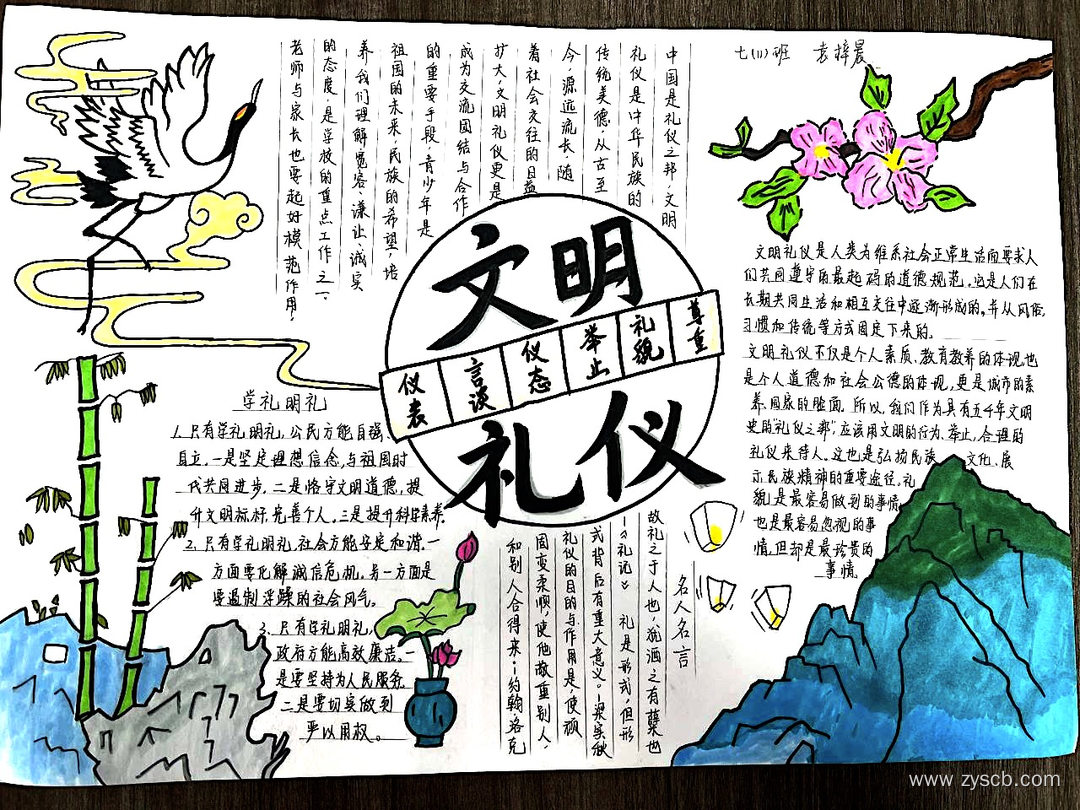 七(11)班 袁梓晨
中国是礼仪之邦,文明
礼仪是中华民族的
传统美德,从古至
今,源远流长,随
着社会交往的日益
扩大,文明礼仪更是
成为交流团结与合作
的重要手段,青少年是
祖国的未来,民族的希望,培
养我们理解宽容、谦让、诚实
的态度,是学校的重点工作之一、
老师与家长也要起好模范作用,
文明
仪表 言谈 仪态 举止 礼貌 尊重
礼仪
文明礼仪是人类为维系社会正常生活而要求人
们共同遵守的最起码的道德规范,它是人们在
长期共同生活和相互交往中逐渐形成的,并从风俗,
习惯和传统等方式固定下来的。
文明礼仪不仅是个人素质、教育教养的体现也
是个人道德和社会公德的体现,更是城市的素
养、国家的脸面,所以,我们作为具有五千年文明
史的"礼仪之邦",应该用文明的行为、举止,合理的
礼仪来待人,这也是弘扬民族文化、展
示民族精神的重要途径,礼
貌是最容易做到的事情
也是最容易忽视的事
情,但却是最珍贵的
事情
学礼明礼
1、只有学礼明礼,公民方能自强、
自立,一是坚定理想信念,与祖国时
代共同进步,二是恪守文明道德,提
升文明标杆,完善个人,三是提升科学素养。
2、只有学礼明礼,社会方能安定和谐,一
方面要化解诚信危机,另一方面是
要遏制浮躁的社会风气。
3、只有学礼明礼,
政府方能高效廉洁,一
是要坚持为人民服务
二是要切实做到
严以用权。
名人名言
故礼之于人也,犹酒之有蘖也
—《礼记》 礼是形式,但形
式背后有重大意义。—梁实秋
礼仪的目的与作用是,使顽
固变柔顺,使他敬重别人,
和别人合得来。—约翰洛克
www.zyscb.com